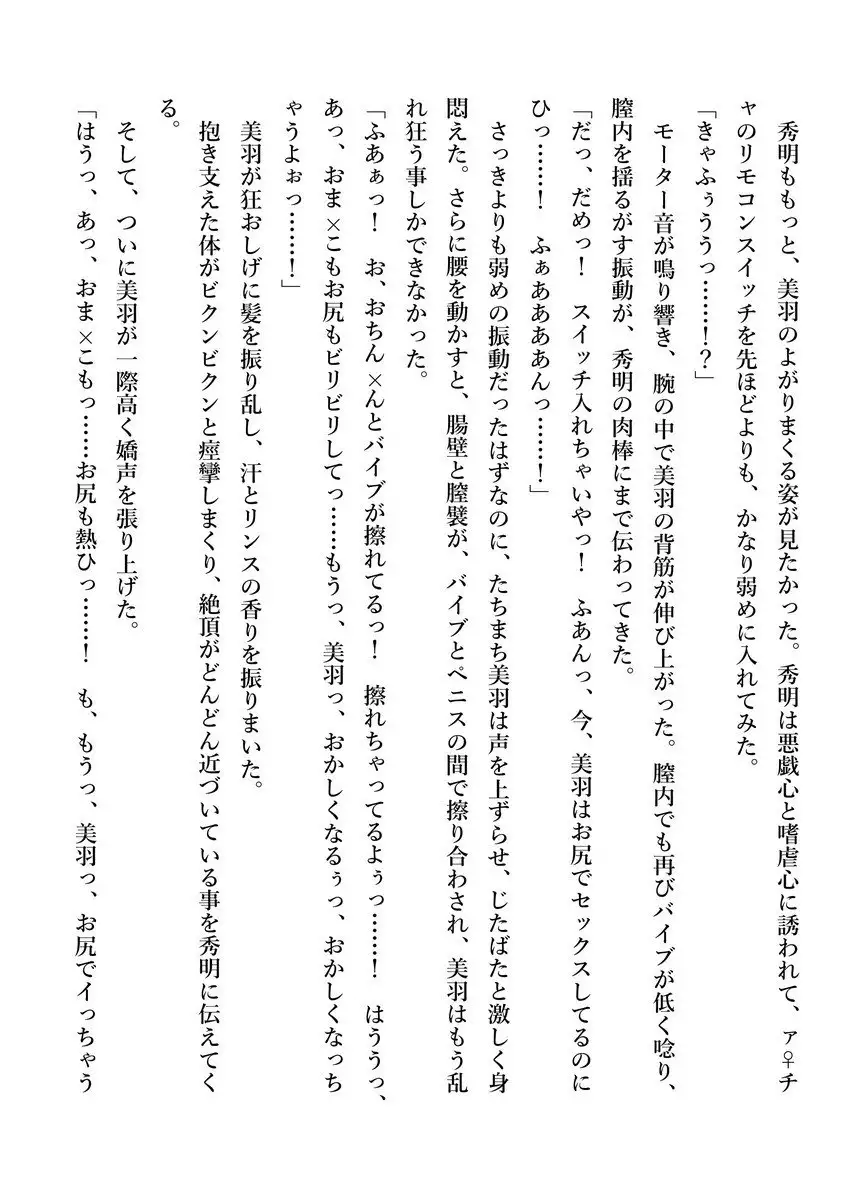 秀明ももっと、美羽のよがりまくる姿が見たかった。秀明は悪戯心と嗜虐心に誘われて、ァ♀チ
ャのリモコンスイッチを先ほどよりも、かなり弱めに入れてみた。
「きゃふぅううっ……!?」
モーター音が鳴り響き、腕の中で美羽の背筋が伸び上がった。膣内でも再びバイブが低く唸り、
膣内を揺るがす振動が、秀明の肉棒にまで伝わってきた。
「だっ、だめっ！　スイッチ入れちゃいやっ！　ふあんっ、今、美羽はお尻でセックスしてるのに
ひっ……！　ふぁああああんっ……！」
さっきよりも弱めの振動だったはずなのに、たちまち美羽は声を上ずらせ、じたばたと激しく身
悶えた。さらに腰を動かすと、腸壁と膣襞が、バイブとペニスの間で擦り合わされ、美羽はもう乱
れ狂う事しかできなかった。
「ふあぁっ！　お、おちん×んとバイブが擦れてるっ！　擦れちゃってるよぅっ……！　はううっ、
あっ、おま×こもお尻もビリビリしてっ……もうっ、美羽っ、おかしくなるぅっ、おかしくなっち
ゃうよぉっ……！」
美羽が狂おしげに髪を振り乱し、汗とリンスの香りを振りまいた。
抱き支えた体がビクンビクンと痙攣しまくり、絶頂がどんどん近づいている事を秀明に伝えてく
る。
そして、ついに美羽が一際高く嬌声を張り上げた。
「はうっ、あっ、おま×こもっ……お尻も熱ひっ……！　も、もうっ、美羽っ、お尻でイっちゃう